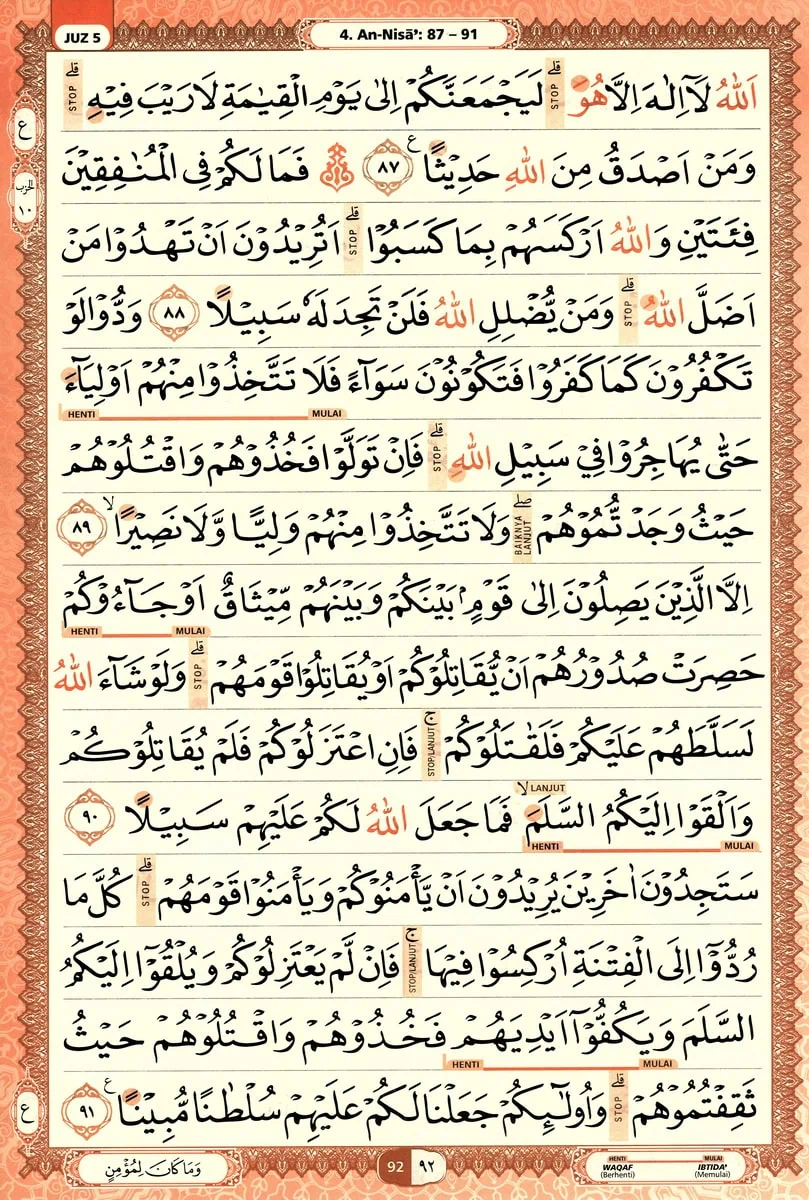 JUZ 5
4. An-Nisā': 87 – 91
ع
الحزب
١٠
اَللّٰهُ لَآ اِلٰهَ اِلَّا هُوَۗ لَيَجْمَعَنَّكُمْ اِلٰى يَوْمِ الْقِيٰمَةِ لَا رَيْبَ فِيْهِۗ
STOP
STOP
وَمَنْ اَصْدَقُ مِنَ اللّٰهِ حَدِيْثًا ࣖ ٨٧ ۞ فَمَا لَكُمْ فِى الْمُنٰفِقِيْنَ
فِئَتَيْنِ وَاللّٰهُ اَرْكَسَهُمْ بِمَا كَسَبُوْاۗ اَتُرِيْدُوْنَ اَنْ تَهْدُوْا مَنْ
STOP
اَضَلَّ اللّٰهُۗ وَمَنْ يُّضْلِلِ اللّٰهُ فَلَنْ تَجِدَ لَهٗ سَبِيْلًا ٨٨ وَدُّوْا لَوْ
STOP
تَكْفُرُوْنَ كَمَا كَفَرُوْا فَتَكُوْنُوْنَ سَوَاۤءً فَلَا تَتَّخِذُوْا مِنْهُمْ اَوْلِيَاۤءَ
HENTI MULAI
حَتّٰى يُهَاجِرُوْا فِيْ سَبِيْلِ اللّٰهِۗ فَاِنْ تَوَلَّوْا فَخُذُوْهُمْ وَاقْتُلُوْهُمْ
STOP
حَيْثُ وَجَدْتُّمُوْهُمْۖ وَلَا تَتَّخِذُوْا مِنْهُمْ وَلِيًّا وَّلَا نَصِيْرًاۙ ٨٩
BAIKNYA LANJUT
اِلَّا الَّذِيْنَ يَصِلُوْنَ اِلٰى قَوْمٍۢ بَيْنَكُمْ وَبَيْنَهُمْ مِّيْثَاقٌ اَوْ جَاۤءُوْكُمْ
HENTI MULAI
حَصِرَتْ صُدُوْرُهُمْ اَنْ يُّقَاتِلُوْكُمْ اَوْ يُقَاتِلُوْا قَوْمَهُمْۗ وَلَوْ شَاۤءَ اللّٰهُ
STOP
لَسَلَّطَهُمْ عَلَيْكُمْ فَلَقٰتَلُوْكُمْۚ فَاِنِ اعْتَزَلُوْكُمْ فَلَمْ يُقَاتِلُوْكُمْ
STOP/LANJUT
وَاَلْقَوْا اِلَيْكُمُ السَّلَمَۙ فَمَا جَعَلَ اللّٰهُ لَكُمْ عَلَيْهِمْ سَبِيْلًا ٩٠
LANJUT
HENTI MULAI
سَتَجِدُوْنَ اٰخَرِيْنَ يُرِيْدُوْنَ اَنْ يَّأْمَنُوْكُمْ وَيَأْمَنُوْا قَوْمَهُمْۗ كُلَّ مَا
STOP
رُدُّوْٓا اِلَى الْفِتْنَةِ اُرْكِسُوْا فِيْهَاۚ فَاِنْ لَّمْ يَعْتَزِلُوْكُمْ وَيُلْقُوْٓا اِلَيْكُمُ
STOP/LANJUT
السَّلَمَ وَيَكُفُّوْٓا اَيْدِيَهُمْ فَخُذُوْهُمْ وَاقْتُلُوْهُمْ حَيْثُ
HENTI MULAI
ثَقِفْتُمُوْهُمْۗ وَاُولٰۤىِٕكُمْ جَعَلْنَا لَكُمْ عَلَيْهِمْ سُلْطٰنًا مُّبِيْنًا ࣖ ٩١
STOP
ع
وَمَا كَانَ لِمُؤْمِنٍ
92 ٩٢
HENTI MULAI
WAQAF IBTIDA'
(Berhenti) (Memulai)